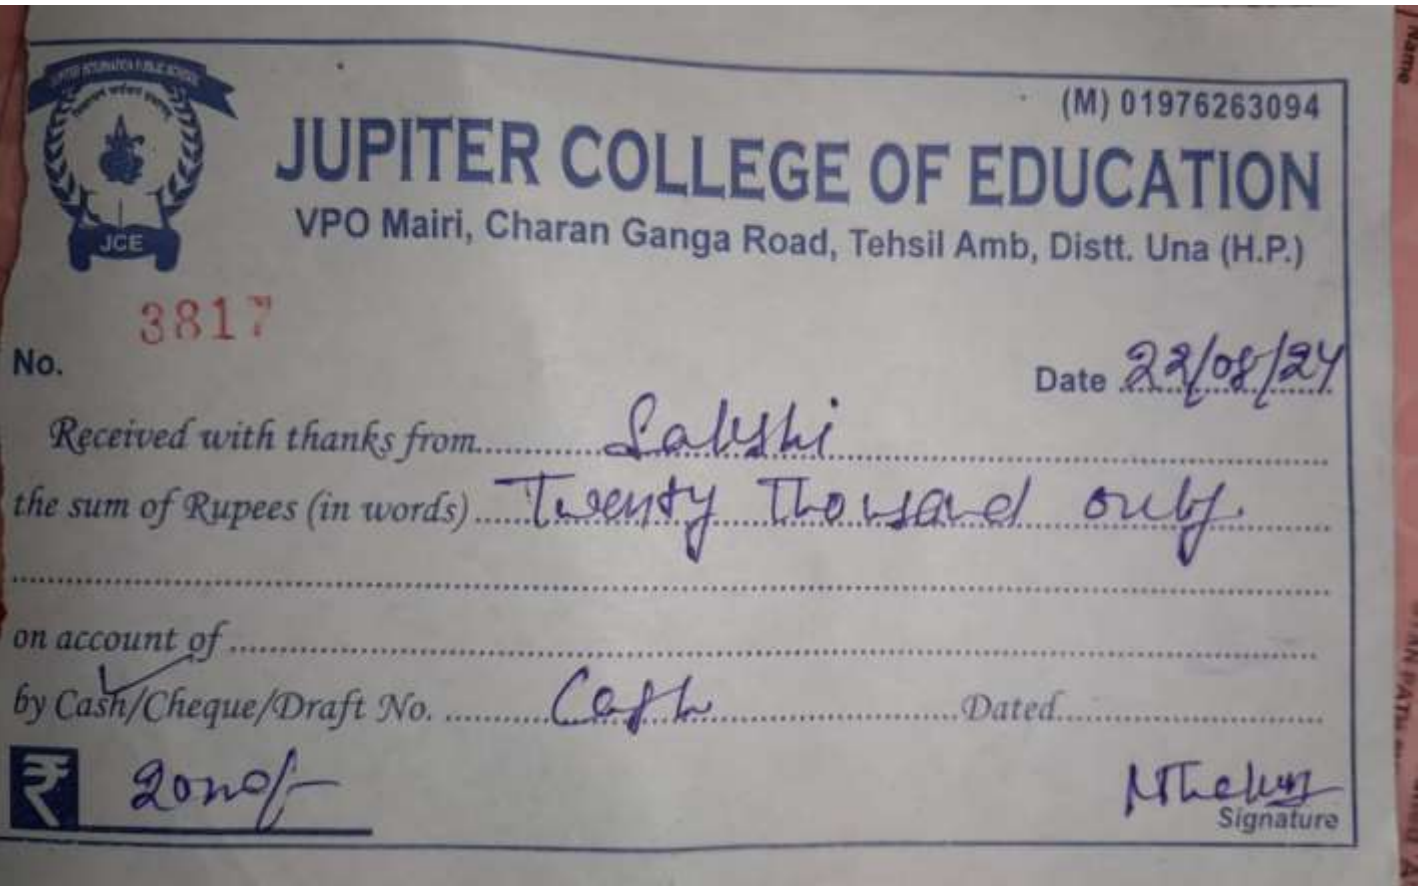 (M) 01976263094
JUPITER COLLEGE OF EDUCATION
VPO Mairi, Charan Ganga Road, Tehsil Amb, Distt. Una (H.P.)
JCE
3817
No.
Date 22/08/24
Received with thanks from Sakshi
the sum of Rupees (in words) Twenty Thousand only.
on account of
by Cash/Cheque/Draft No. Cash Dated
₹ 20000/-
Signature
Name